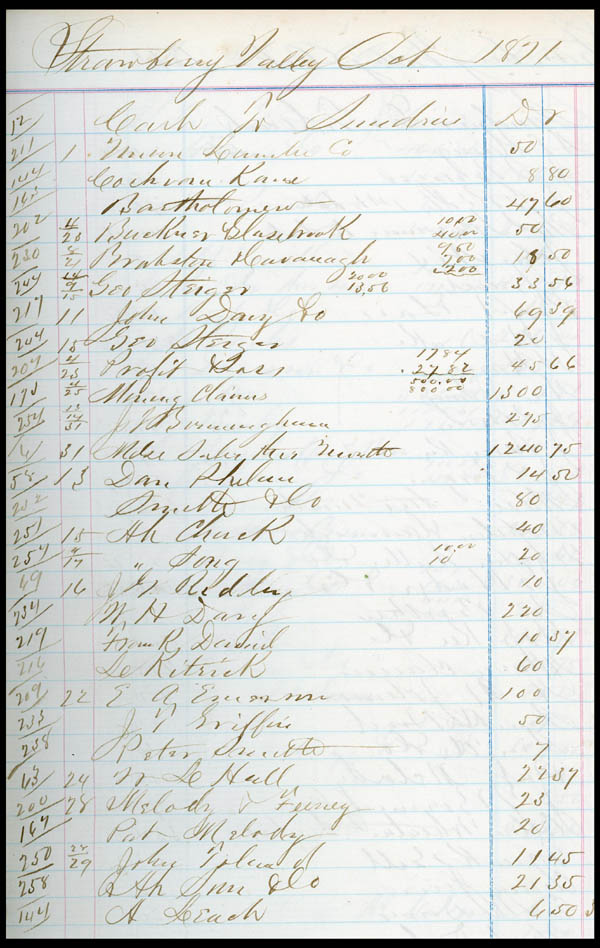 Strawberry Valley Oct 1871
52 Cash To Sundries Dr
211 1 Union Lumber Co 50
144 Cochran Kane 8 80
Bartholomew 47 60
202 4 20 Buckner Glasebrook 10.00 40.00 50
230 Brabston & Cavanagh 9 50 7.00 2.00 18 50
244 14 9 15 Geo Steiger 20.00 13.56 33 56
217 11 John Davy &Co 69 39
244 18 Geo Steiger 20
207 4 23 Profit & Loss 17 84 27 82 45 66
4 25 Mining Claims 500.00 800.00 1300
254 13 14 31 J Birmingham 275
31 Mdse Sales this Month 1240 75
58 13 Dan Phelan 14 50
Smith &Co 80
251 15 Ah Chuck 40
257 17 " Song 10.00 10 20
49 16 Ridley 10
234 W H Davy 220
219 R David 10 37
216 60
209 22 E A Emerson 100
233 J Griffin 50
238 Peter Smith 7
63 24 Hall 27 37
200 28 Melody & Feeney 23
167 Pat Melody 20
250 28 29 John Toland 11 45
258 Ah Sun &Co 21 35
144 A Leach 6 50